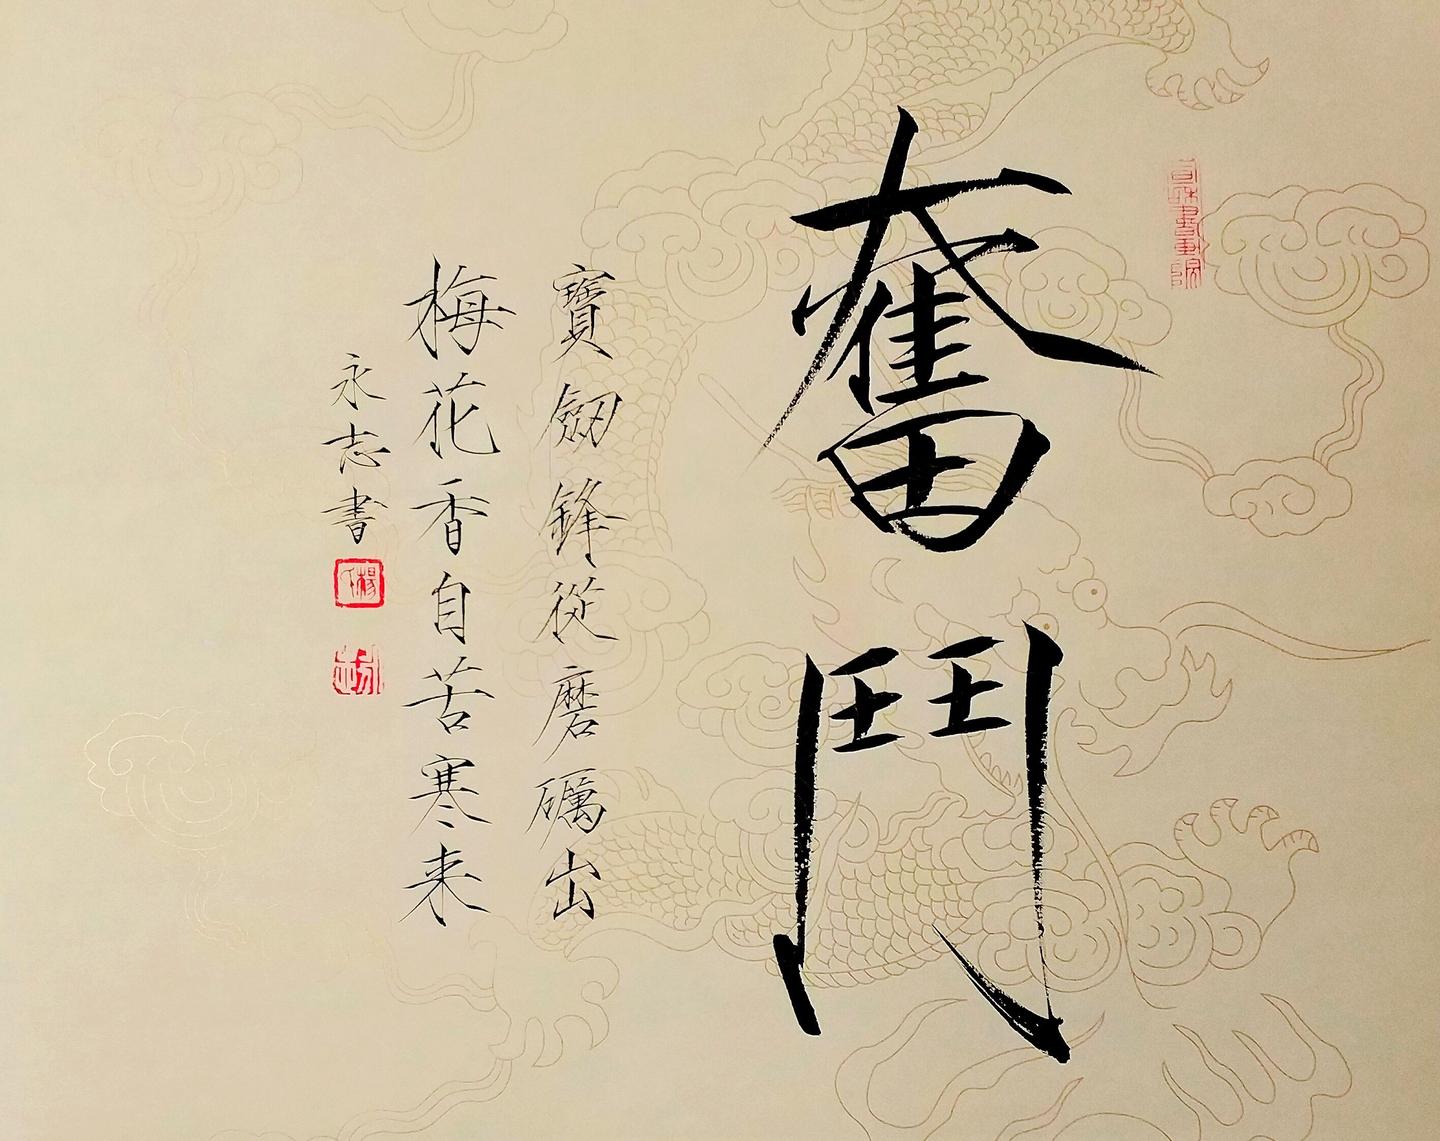 奮鬥
寶劔鋒從磨礪出
梅花香自苦寒来
永志書